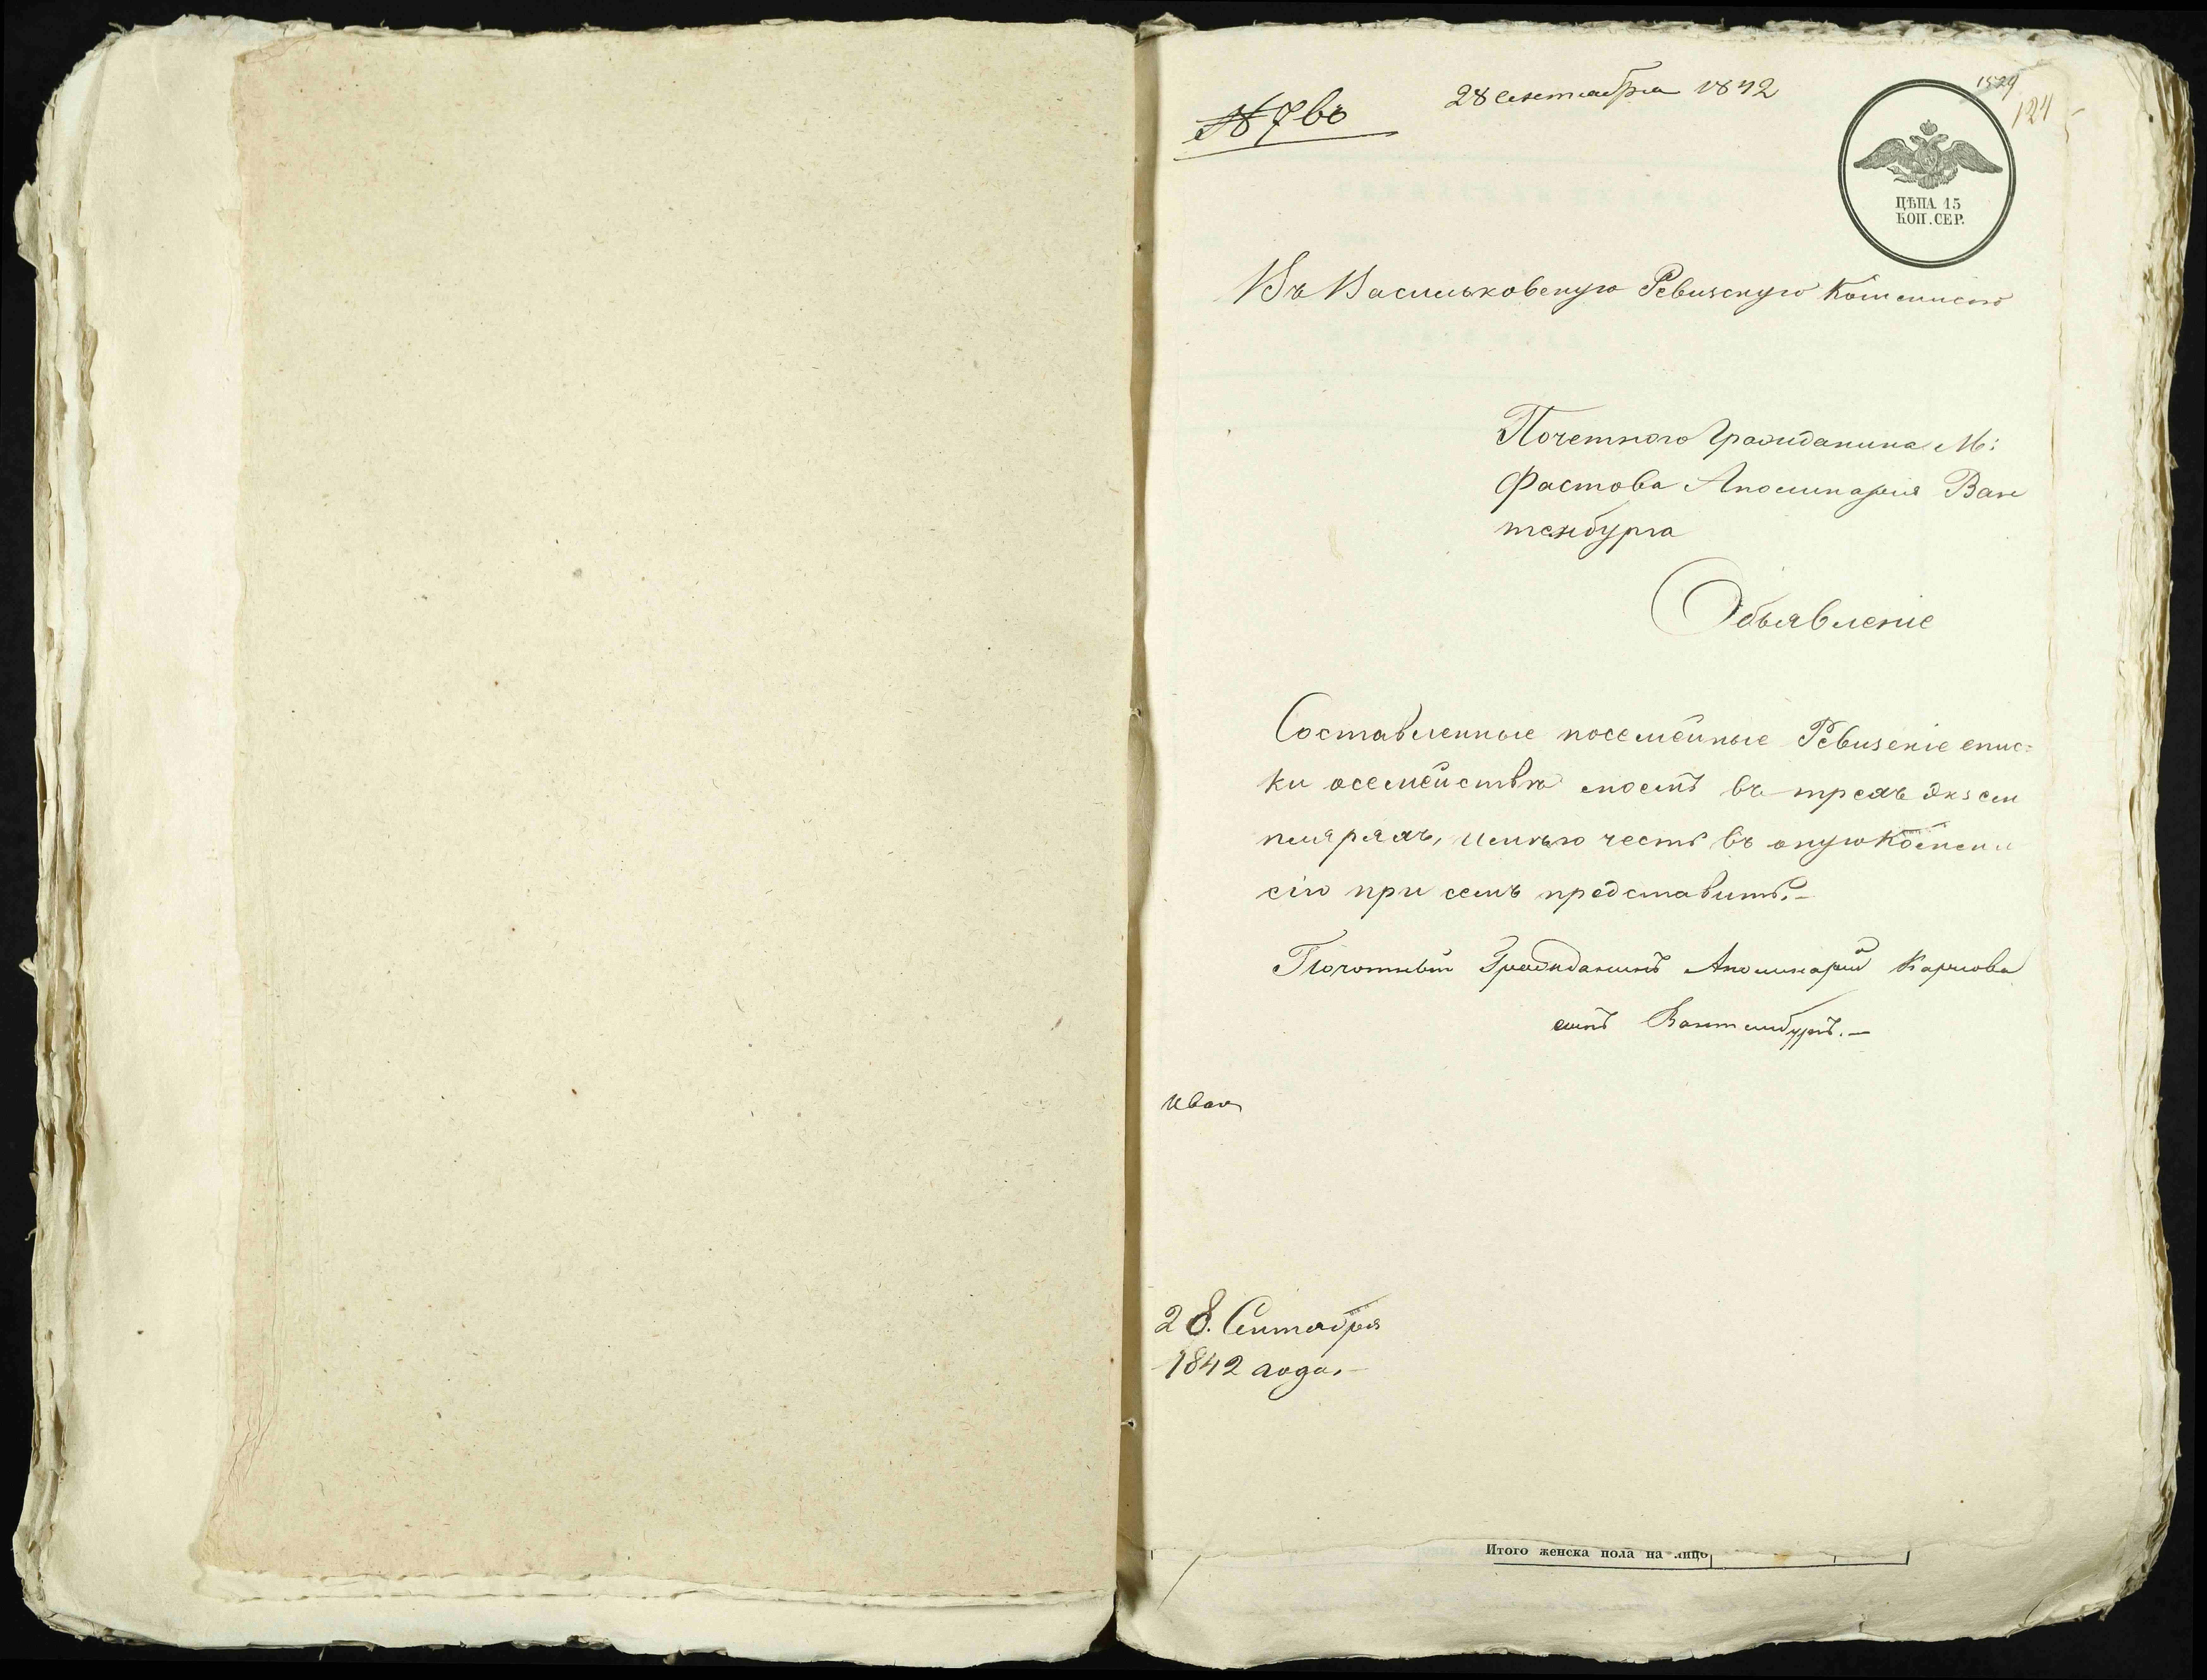 28 Сентября 1842
1529
124
№ 7 въ
ЦѢНА 15
КОП. СЕР.
Въ Васильковскую Ревизскую Комисию
Почетного Гражданина М:
Фастова Аполинария Ван
тенбурга
Объявленіе
Составленные посемейные Ревизскіе спис-
ки осемействѣ моемъ въ трехъ экзем
плярахъ, имѣю честь въ оную Коммми
сію при семъ представить.-
Почотный Гражданинъ Аполинарий Карлова
сынъ Вантенбургъ.-
Иван
28. Сентября
1842 года.-
Итого женска пола на лицо